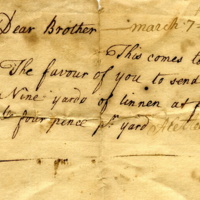 Dear Brother march 7
This comes to
The favour of you to send
Nine yards of linnen at
to four pence pr yard